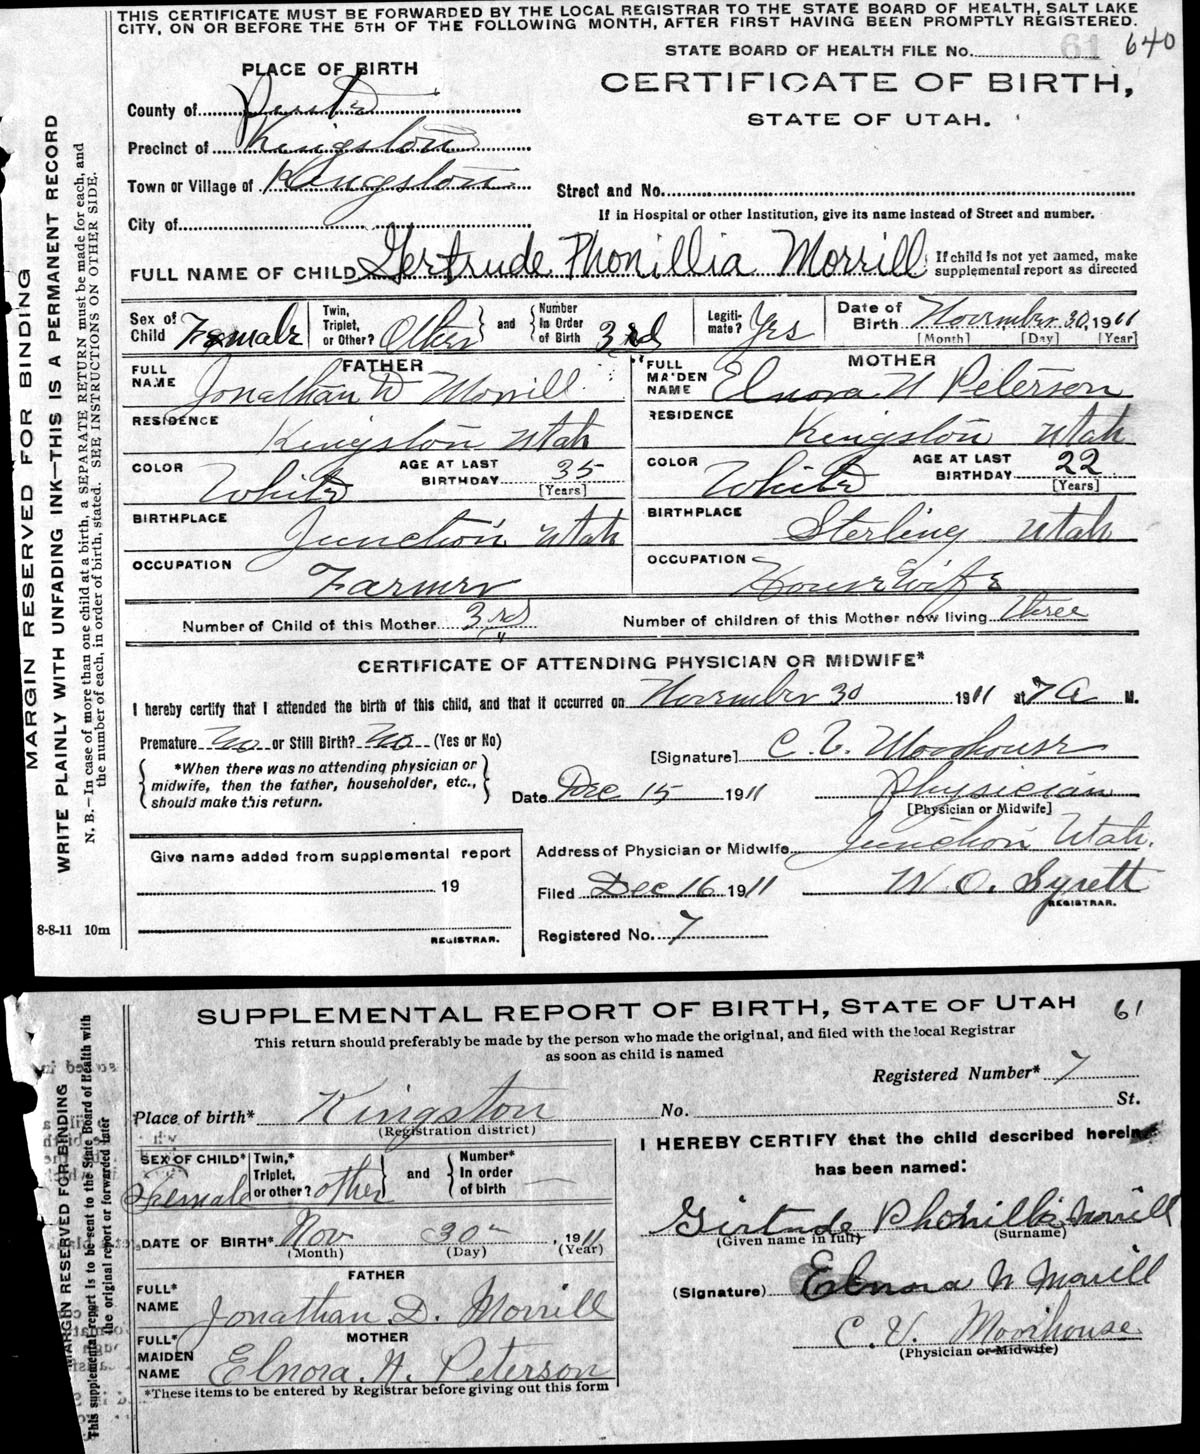 THIS CERTIFICATE MUST BE FORWARDED BY THE LOCAL REGISTRAR TO THE STATE BOARD OF HEALTH, SALT LAKE
CITY, ON OR BEFORE THE 5TH OF THE FOLLOWING MONTH, AFTER FIRST HAVING BEEN PROMPTLY REGISTERED.
STATE BOARD OF HEALTH FILE No. 61 640
PLACE OF BIRTH
CERTIFICATE OF BIRTH,
STATE OF UTAH.
County of
Precinct of Kingston
Town or Village of Kingston
Street and No.
If in Hospital or other Institution, give its name instead of Street and number.
City of
FULL NAME OF CHILD Gertrude Phonillia Morrill
If child is not yet named, make
supplemental report as directed
Sex of Child Female
Twin, Triplet, or Other? Other and Number In Order of Birth 3rd
Legiti-mate? Yes
Date of Birth November 30, 1911
[Month] [Day] [Year]
FATHER
FULL NAME Jonathan D Morrill
RESIDENCE Kingston Utah
COLOR White AGE AT LAST BIRTHDAY 35
[Years]
BIRTHPLACE Junction Utah
OCCUPATION Farmer
MOTHER
FULL MAIDEN NAME Elnora N Peterson
RESIDENCE Kingston Utah
COLOR White AGE AT LAST BIRTHDAY 22
[Years]
BIRTHPLACE Sterling Utah
OCCUPATION HouseWife
Number of Child of this Mother 3rd
Number of children of this Mother now living three
CERTIFICATE OF ATTENDING PHYSICIAN OR MIDWIFE*
I hereby certify that I attended the birth of this child, and that it occurred on November 30 1911 at 7 A M.
Premature No or Still Birth? No (Yes or No)
*When there was no attending physician or
midwife, then the father, householder, etc.,
should make this return.
[Signature] C. V. Moorhouse
Date Dec 15 1911 Physician
[Physician or Midwife]
Give name added from supplemental report
19
REGISTRAR.
Address of Physician or Midwife Junction Utah.
Filed Dec 16 1911 W. O. Syrett
REGISTRAR.
Registered No. 7
8-8-11 10m
MARGIN RESERVED FOR BINDING
WRITE PLAINLY WITH UNFADING INK—THIS IS A PERMANENT RECORD
N. B.—In case of more than one child at a birth, a SEPARATE RETURN must be made for each, and
the number of each, in order of birth, stated. SEE INSTRUCTIONS ON OTHER SIDE.
SUPPLEMENTAL REPORT OF BIRTH, STATE OF UTAH 61
This return should preferably be made by the person who made the original, and filed with the local Registrar
as soon as child is named
Registered Number* 7
Place of birth* Kingston
(Registration district)
No. St.
SEX OF CHILD* Female
Twin,* Triplet, or other? other and Number* In order of birth
DATE OF BIRTH* Nov 30 1911
(Month) (Day) (Year)
FATHER
FULL* NAME Jonathan D. Morrill
MOTHER
FULL* MAIDEN NAME Elnora N. Peterson
*These items to be entered by Registrar before giving out this form
I HEREBY CERTIFY that the child described herein
has been named:
Girtude Phonillia Morrill
(Given name in full) (Surname)
(Signature) Elnora N Morrill
C. V. Moorhouse
(Physician or Midwife)
MARGIN RESERVED FOR BINDING
This supplemental report is to be sent to the State Board of Health with
the original report or forwarded later